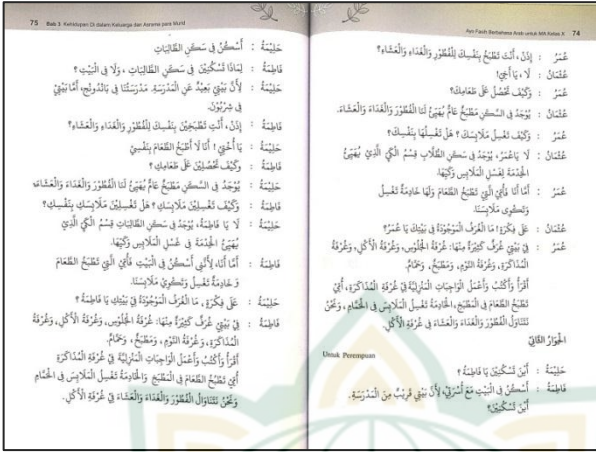 Ayo Fasih Berbahasa Arab untuk MA Kelas X 74
عُمَرُ : إِذَنْ، أَنْتَ تَطْبَخُ بِنَفْسِكَ لِلْفُطُوْرِ وَالْغَدَاءِ وَالْعَشَاءِ؟
عُثْمَانُ : لَا، يَا أَخِيْ!
عُمَرُ : وَكَيْفَ تَحْصُلُ عَلَى طَعَامِكَ؟
عُثْمَانُ : يُوْجَدُ فِي السَّكَنِ مَطْبَخٌ عَامٌّ يُهَيِّئُ لَنَا الْفُطُوْرَ وَالْغَدَاءَ وَالْعَشَاءَ.
عُمَرُ : وَكَيْفَ تَغْسِلُ مَلَابِسَكَ؟ هَلْ تَغْسِلُهَا بِنَفْسِكَ؟
عُثْمَانُ : لَا يَاعُمَرُ، يُوْجَدُ فِي سَكَنِ الطُّلَّابِ قِسْمُ الْكَيِّ الَّذِيْ يُهَيِّئُ
الْخِدْمَةَ لِغَسْلِ الْمَلَابِسِ وَكَيِّهَا.
عُمَرُ : أَمَّا أَنَا فَأُمِّيْ الَّتِيْ تَطْبَخُ الطَّعَامَ وَلَهَا خَادِمَةٌ تَغْسِلُ
وَتَكْوِي مَلَابِسَنَا.
عُثْمَانُ : عَلَى فِكْرَةٍ! مَا الْغُرَفُ الْمَوْجُوْدَةُ فِيْ بَيْتِكَ يَا عُمَرُ؟
عُمَرُ : فِيْ بَيْتِيْ غُرَفٌ كَثِيْرَةٌ مِنْهَا: غُرْفَةُ الْجُلُوْسِ، وَغُرْفَةُ الْأَكْلِ، وَغُرْفَةُ
الْمُذَاكَرَةِ، وَغُرْفَةُ النَّوْمِ، وَمَطْبَخٌ، وَحَمَّامٌ.
أَقْرَأُ وَأَكْتُبُ وَأَعْمَلُ الْوَاجِبَاتِ الْمَنْزِلِيَّةَ فِيْ غُرْفَةِ الْمُذَاكَرَةِ، أُمِّيْ
تَطْبُخُ الطَّعَامَ فِي الْمَطْبَخِ، الخَادِمَةُ تَغْسِلُ الْمَلَابِسَ فِي الْحَمَّامِ، وَنَحْنُ
نَتَنَاوَلُ الْفُطُوْرَ وَالْغَدَاءَ وَالْعَشَاءَ فِيْ غُرْفَةِ الْأَكْلِ.
الْحِوَارُ الثَّانِيْ
Untuk Perempuan
حَلِيْمَةُ : أَيْنَ تَسْكُنِيْنَ يَا فَاطِمَةُ ؟
فَاطِمَةُ : أَسْكُنُ فِي الْبَيْتِ مَعَ أُسْرَتِيْ، لِأَنَّ بَيْتِيْ قَرِيْبٌ مِنَ الْمَدْرَسَةِ.
أَيْنَ تَسْكُنِيْنَ؟
75 Bab 3. Kehidupan Di dalam Keluarga dan Asrama para Murid
حَلِيْمَةُ : أَسْكُنُ فِيْ سَكَنِ الطَّالِبَاتِ
فَاطِمَةُ : لِمَاذَا تَسْكُنِيْنَ فِيْ سَكَنِ الطَّالِبَاتِ ، وَلَا فِي الْبَيْتِ ؟
حَلِيْمَةُ : لِأَنَّ بَيْتِيْ بَعِيْدٌ عَنِ الْمَدْرَسَةِ. مَدْرَسَتُنَا فِيْ بَانْدُونْج، أَمَّا بَيْتِيْ
فِيْ شِرْبُوْن.
فَاطِمَةُ : إِذَنْ، أَنْتِ تَطْبَخِيْنَ بِنَفْسِكِ لِلْفُطُوْرِ وَالْغَدَاءِ وَالْعَشَاءِ؟
حَلِيْمَةُ : يَا أُخْتِيْ! أَنَا لَا أَطْبَخُ الطَّعَامَ بِنَفْسِيْ
فَاطِمَةُ : وَكَيْفَ تَحْصُلِيْنَ عَلَى طَعَامِكِ ؟
حَلِيْمَةُ : يُوْجَدُ فِي السَّكَنِ مَطْبَخٌ عَامٌّ يُهَيِّئُ لَنَا الْفُطُوْرَ وَالْغَدَاءَ وَالْعَشَاءَ
فَاطِمَةُ : وَكَيْفَ تَغْسِلِيْنَ مَلَابِسَكِ؟ هَلْ تَغْسِلِيْنَ مَلَابِسَكِ بِنَفْسِكِ؟
حَلِيْمَةُ : لَا يَا فَاطِمَةُ، يُوْجَدُ فِيْ سَكَنِ الطَّالِبَاتِ قِسْمُ الْكَيِّ الَّذِيْ
يُهَيِّئُ الْخِدْمَةَ فِيْ غَسْلِ الْمَلَابِسِ وَكَيِّهَا.
فَاطِمَةُ : أَمَّا أَنَا، لِأَنَّنِي أَسْكُنُ فِي الْبَيْتِ فَأُمِّيْ الَّتِيْ تَطْبَخُ الطَّعَامَ
وَ خَادِمَةٌ تَغْسِلُ وَتَكْوِيْ مَلَابِسَنَا.
حَلِيْمَةُ : عَلَى فِكْرَةٍ ، مَا الْغُرَفُ الْمَوْجُوْدَةُ فِيْ بَيْتِكِ يَا فَاطِمَةُ ؟
فَاطِمَةُ : فِيْ بَيْتِيْ غُرَفٌ كَثِيْرَةٌ مِنْهَا: غُرْفَةُ الْجُلُوْسِ، وَغُرْفَةُ الْأَكْلِ، وَغُرْفَةُ
الْمُذَاكَرَةِ، وَغُرْفَةُ النَّوْمِ ، وَمَطْبَخٌ ، وَحَمَّامٌ.
أَقْرَأُ وَأَكْتُبُ وَأَعْمَلُ الْوَاجِبَاتِ الْمَنْزِلِيَّةَ فِيْ غُرْفَةِ الْمُذَاكَرَةِ
أُمِّيْ تَطْبُخُ الطَّعَامَ فِي الْمَطْبَخِ وَالْخَادِمَةُ تَغْسِلُ الْمَلَابِسَ فِي الْحَمَّامِ
وَنَحْنُ نَتَنَاوَلُ الْفُطُوْرَ وَالْغَدَاءَ وَالْعَشَاءَ فِيْ غُرْفَةِ الْأَكْلِ.